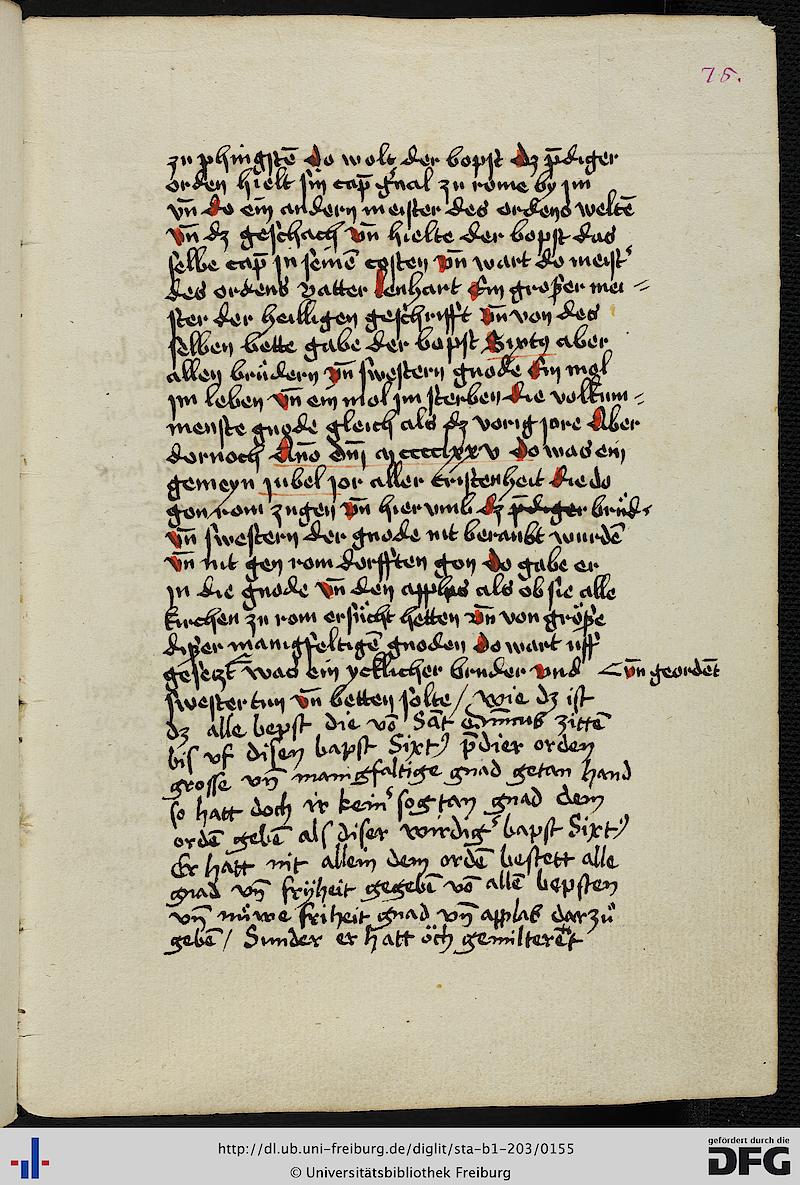 75.
zu phingstē do wolt der bopst dz p̄diger
orden hielt sin cap̄ gnal zu rome by im
vn̄ do ein andern meister des ordens weltē
vn̄ dz geschach vn̄ hielte der bopst das
selbe cap̄ in seinē costen vn̄ wart do meist'
des ordens vatter lenhart Ein grosser mei=
ster der heilligen geschrifft vn̄ von des
selben bette gabe der bopst Sixty aber
allen brüdern vn̄ swestern gnode Ein mol
im leben vn̄ ein mol im sterben die volkum=
menste gnode gleich als dz vorig jore Aber
dornoch Año dn̄i mcccclxxv do was ein
gemeyn jubel jor aller cristenheit die do
gon rom zugen vn̄ hier vmb dz p̄diger brüd'
vn̄ swestern der gnode nit beraubt wurdē
vn̄ nit gen rom dorfften gon do gabe er
in die gnode vn̄ den applas als ob sie alle
kirchen zu rom ersücht hetten vn̄ von grösse
disser manigfeltigē gnoden do wart uff
gesezt was ein ycklicher bruder vnd vn̄ geordēt
swester tun vn̄ betten solte / wie dz ist
dz alle bepst die vō Sāt dm̄icus zittē
bis vf disen bapst Sixt9 p̄dier orden
grosse vn̄ manigfaltige gnad getan hand
so hatt doch ir kein' sogtan gnad dem
ordē gebē als diser wirdig' bapst Sixt9
Er hatt nit allein dem ordē bestett alle
gnad vn̄ fryheit gegebē vō allē bepsten
vn̄ nüwe friheit gnad vn̄ applas darzů
gebē / Sunder er hatt öch gemilterēt
http://dl.ub.uni-freiburg.de/diglit/sta-b1-203/0155
© Universitätsbibliothek Freiburg
gefördert durch die
DFG